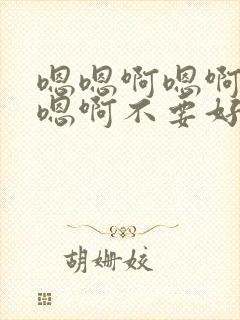 嗯嗯啊嗯啊
嗯啊不要好
胡姗姣